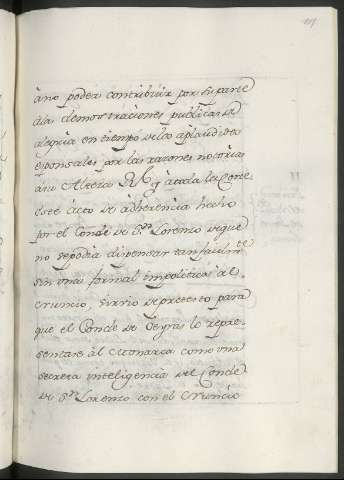 àno poder contribuir por su parte
alas demostraciones publicas de
alegria en tiempo delos aplaudidos
esponsales por las razones notorias
àsu Alteza Rl y àtoda la Corte
este acto de adherencia hecho
por el Conde de Sn Lorenzo deque
no sepodia dispensar tan facilmte
sin una formal impolitica àl
Nuncio, sirvio depretexto para
que el Conde de Oeyras lo repre-
sentase àl Monarca como una
secreta inteligencia del Conde
de Sn Lorenzo con el Nuncio